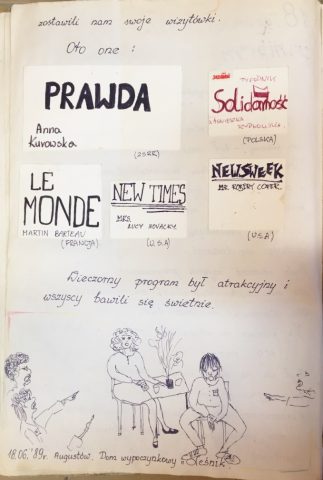 zostawili nam swoje wizytówki.
Oto one :
PRAWDA
Anna
Kurowska
(ZSRR)
TYGODNIK
Solidarność
(POLSKA)
LE
MONDE
MARTIN BARTEAU
(FRANCJA)
NEW TIMES
MRS.
LUCY KOVACKY
(U.S.A)
NEWSWEEK
MR.
(U.S.A)
Wieczorny program był atrakcyjny i
wszyscy bawili się świetnie.
18.06.'89r. Augustów. Dom wypoczynkowy